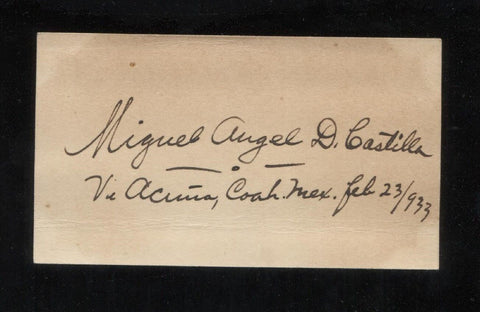 Miguel Angel D. Castilla
Va Acuña, Coah. Mex. feb 23/933